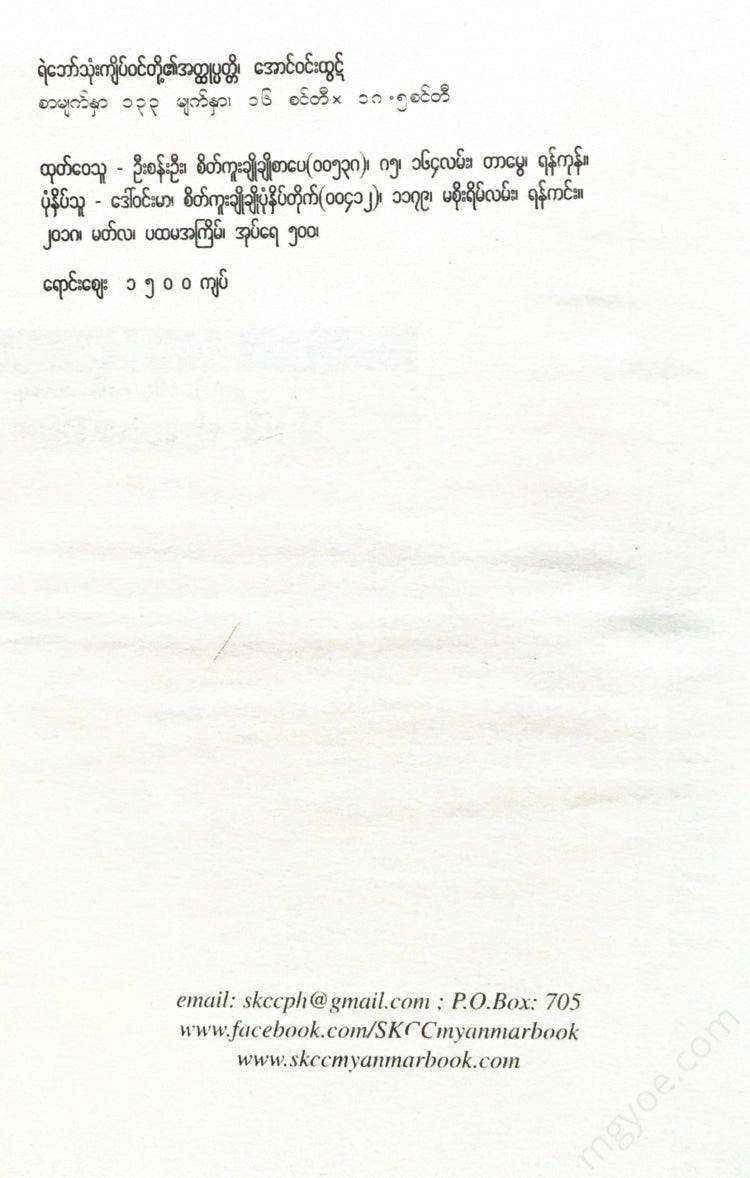 ရဲဘော်သုံးကျိပ်ဝင်တို့၏အတ္ထုပ္ပတ္တိ၊ အောင်ဝင်းထွဋ်
စာမျက်နှာ ၁၃၃ မျက်နှာ၊ ၁၆ စင်တီ× ၁၈.၅စင်တီ
ထုတ်ဝေသူ - ဦးစန်းဦး၊ စိတ်ကူးချိုချိုစာပေ(၀၀၅၃၈)၊ ၈၅၊ ၁၆၄လမ်း၊ တာမွေ၊ ရန်ကုန်။
ပုံနှိပ်သူ - ဒေါ်ဝင်းမာ၊ စိတ်ကူးချိုချိုပုံနှိပ်တိုက်(၀၀၄၁၂)၊ ၁၁၇၉၊ မစိုးရိမ်လမ်း၊ ရန်ကင်း။
၂၀၁၈၊ မတ်လ၊ ပထမအကြိမ်၊ အုပ်ရေ ၅၀၀၊
ရောင်းဈေး ၁ ၅ ၀ ၀ ကျပ်
email: skccph@gmail.com ; P.O.Box: 705
www.facebook.com/SKCCmyanmarbook
www.skccmyanmarbook.com
mgyoe.com